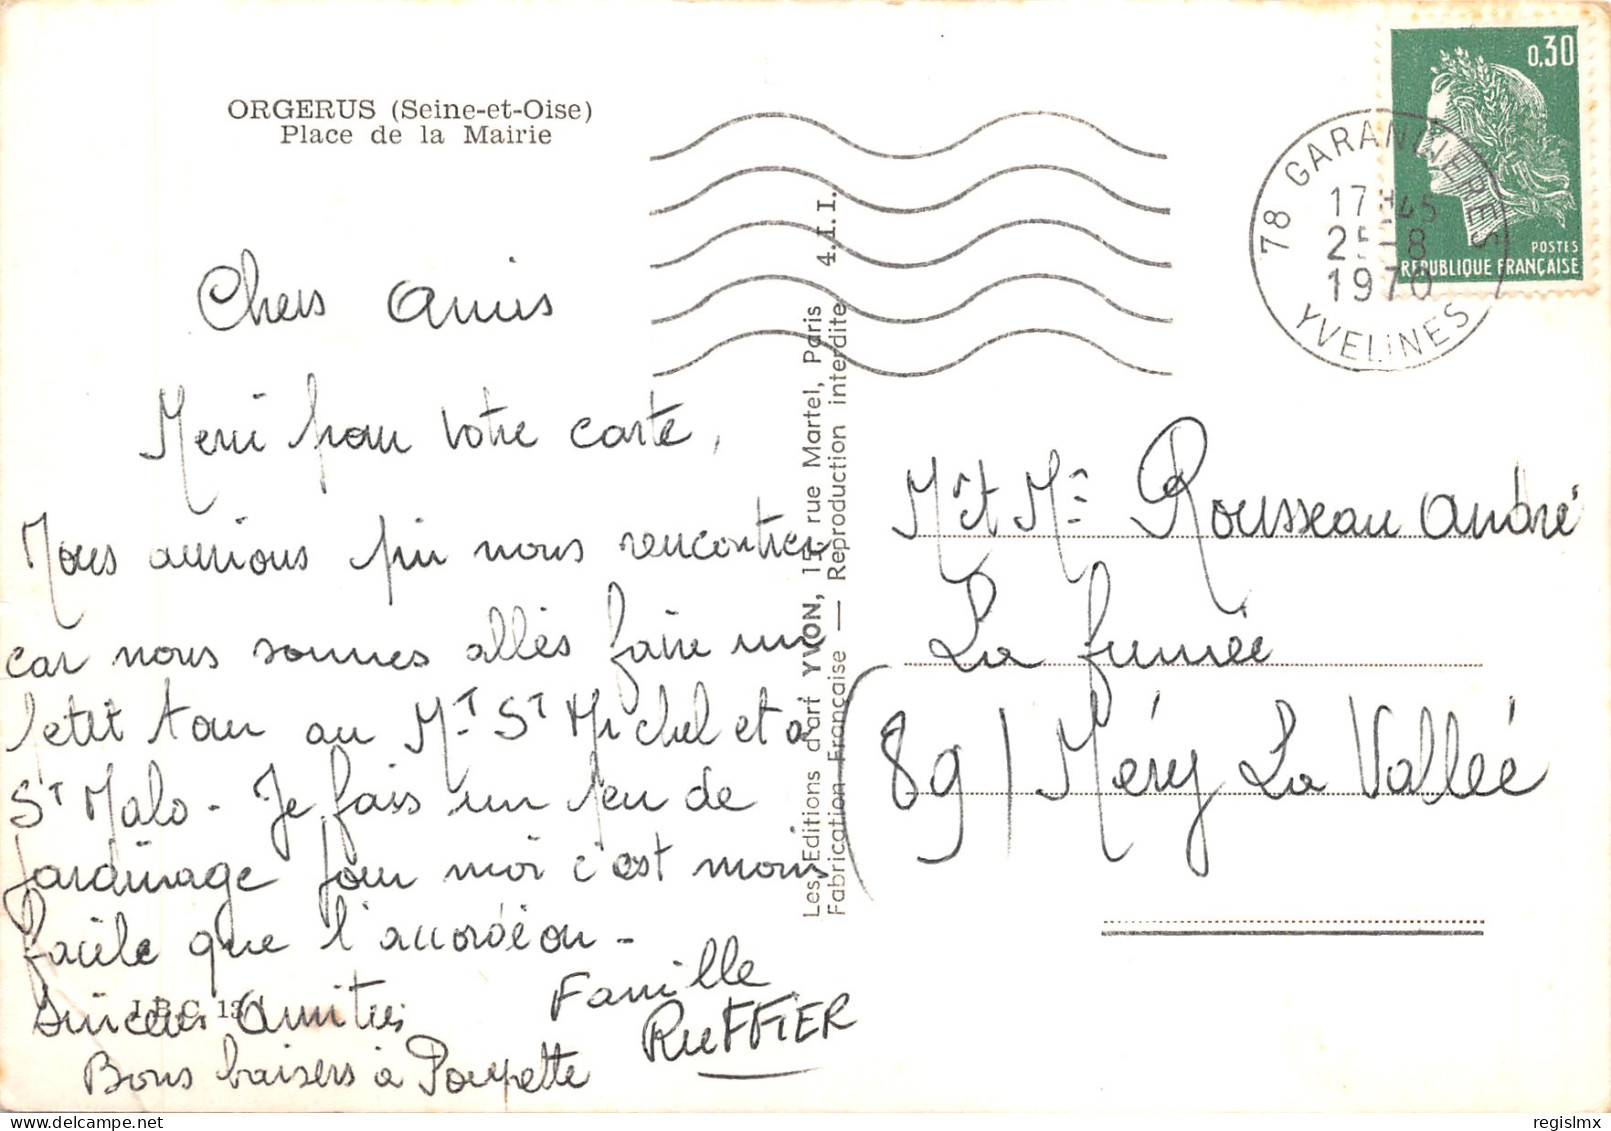 ORGERUS (Seine-et-Oise)
Place de la Mairie
Chers Amis
Merci pour votre carte,
Nous aurions pu nous rencontrer
car nous sommes allés faire un
petit tour au MT ST Michel et à
ST Malo - Je fais un peu de
jardinage pour moi c'est moins
facile que l'accordéon -
Sincères Amitiés
Famille
RUFFIER
Bons baisers à Poupette
I.P.C. 13
Les Editions d'art YVON, 15, rue Martel, Paris 4.I.I.
Fabrication Française — Reproduction interdite
0,30
POSTES
REPUBLIQUE FRANÇAISE
78 GARANCIERES
17H45
25-8
1970
YVELINES
Mr et Me Rousseau André
La fumée
89 / Méry La Vallée
regislmx